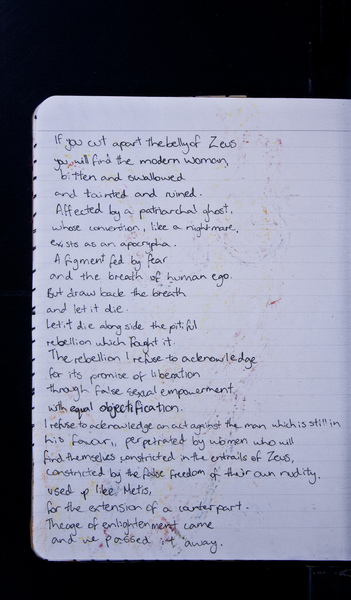 If you cut apart the belly of Zeus
you will find the modern woman,
bitten and swallowed
and tainted and ruined.
Affected by a patriarchal ghost,
whose convention, like a nightmare,
exists as an apocrypha.
A figment fed by fear
and the breath of human ego.
But draw back the breath
and let it die.
Let it die along side the pitiful
rebellion which fought it.
The rebellion I refuse to acknowledge
for its promise of liberation
through false sexual empowerment
with equal objectification.
I refuse to acknowledge an act against the man, which is still in
his favour, perpetrated by women who will
find themselves constricted in the entrails of Zeus,
constricted by the false freedom of their own nudity.
used up like Metis,
for the extension of a counterpart.
The age of enlightenment came
and we passed it away.